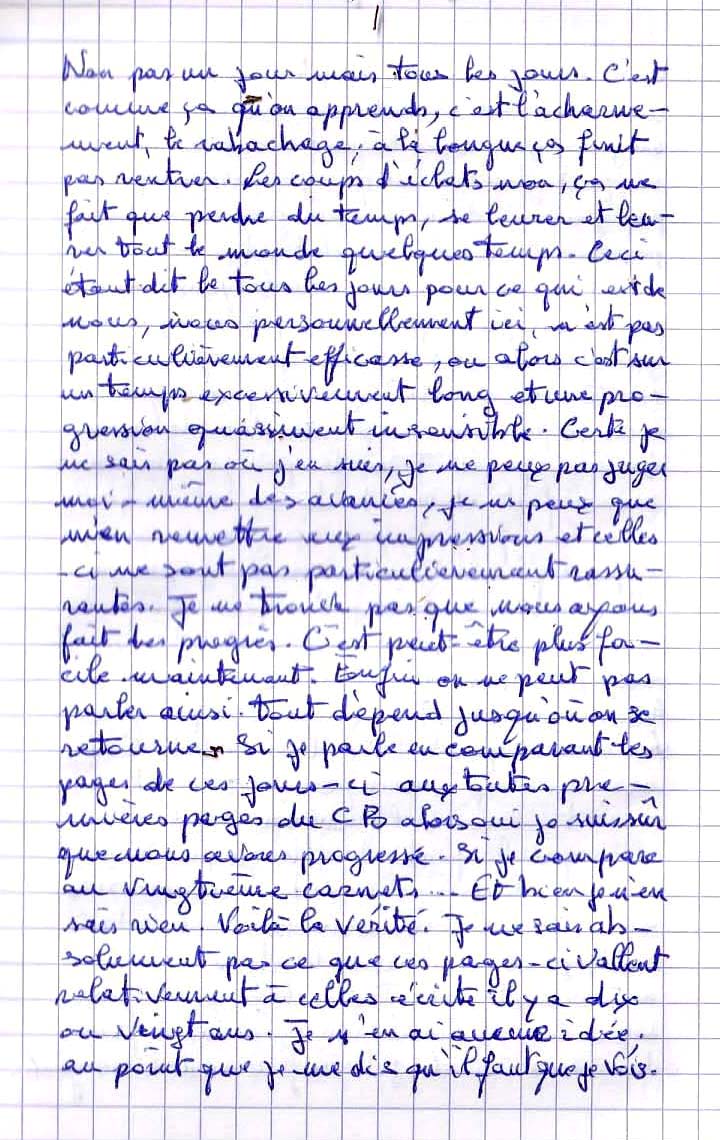 1
Non pas un jour mais tous les jours. C'est
comme ça qu'on apprends, c'est l'acharne-
ment, le rabachage, à la longue ça finit
par rentrer. Les coups d'éclats non, ça ne
fait que perdre du temps, se leurrer et leu-
rer tout le monde quelques temps. Ceci
étant dit le tous les jours pour ce qui est de
nous, nous personnellement ici, n'est pas
particulièrement efficasse, ou alors c'est sur
un temps excessivement long et une pro-
gression quasiment insensible. Certe je
ne sais pas où j'en suis, je ne peux pas juger
moi-même des avancées, je ne peux que
m'en remettre aux impressions et celles
-ci ne sont pas particulièrement rassu-
rantes. Je ne trouve pas que nous ayons
fait des progrès. C'est peut-être plus fa-
cile maintenant. Enfin on ne peut pas
parler ainsi. tout dépend jusqu'où on se
retourne. Si je parle en comparant les
pages de ces jours-ci aux toutes pre-
mières pages du CP alors oui je suis sûr
que nous avons progressé. Si je compare
au vingtième carnets... Et bien je n'en
sais rien. Voilà la vérité. Je ne sais ab-
solument pas ce que ces pages-ci vallent
relativement à celles écrite il y a dix
ou vingt ans. Je n'en ai aucune idée,
au point que je me dis qu'il faut que je vois.